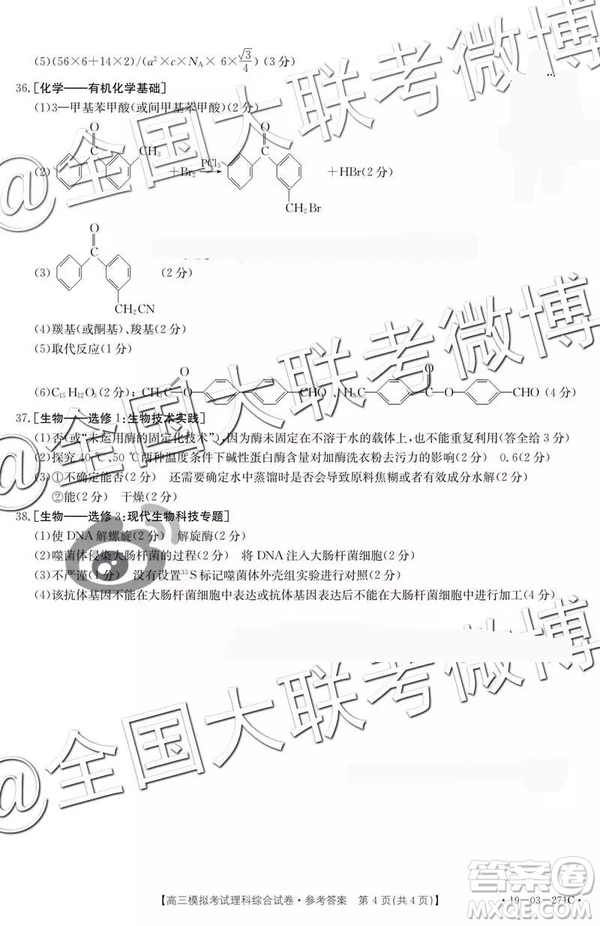 (5)(56×6+14×2)/(a²×c×N_A×6×√3/4)(3分)
36.[化学——有机化学基础]
(1)3—甲基苯甲酸(或间甲基苯甲酸)(2分)
(2) O C CH₃ +Br₂ PCl₃ → O C CH₂Br +HBr(2分)
(3) O C CH₂CN (2分)
(4)羰基(或酮基)、羧基(2分)
(5)取代反应(1分)
(6)C₁₅H₁₂O₃(2分); CHO、H₃C C O O CHO (4分)
37.[生物——选修1:生物技术实践]
(1)否(或“未运用酶的固定化技术”),因为酶未固定在不溶于水的载体上,也不能重复利用(答全给3分)
(2)探究40℃、50℃两种温度条件下碱性蛋白酶含量对加酶洗衣粉去污力的影响(2分) 0.6(2分)
(3)①不合适(1分) 还需要蒸馏时是否会导致原料焦糊或者有效成分水解(2分)
②能(2分) 干燥(2分)
38.[生物——选修3:现代生物科技专题]
(1)使DNA解螺旋(2分) 解旋酶(2分)
(2)噬菌体侵染大肠杆菌的过程(2分) 将DNA注入大肠杆菌细胞(2分)
(3)不严谨(1分) 没设置³⁵S标记噬菌体外壳组实验进行对照(2分)
(4)该抗体基因不能在大肠杆菌细胞中表达或抗体基因表达后不能在大肠杆菌细胞中进行加工(4分)
@全国大联考微博
@全国大联考微博
@全国大联考微博
【高三模拟考试理科综合试卷·参考答案 第4页(共4页)】
·19-03-271C·
答案圈
MXQE.COM